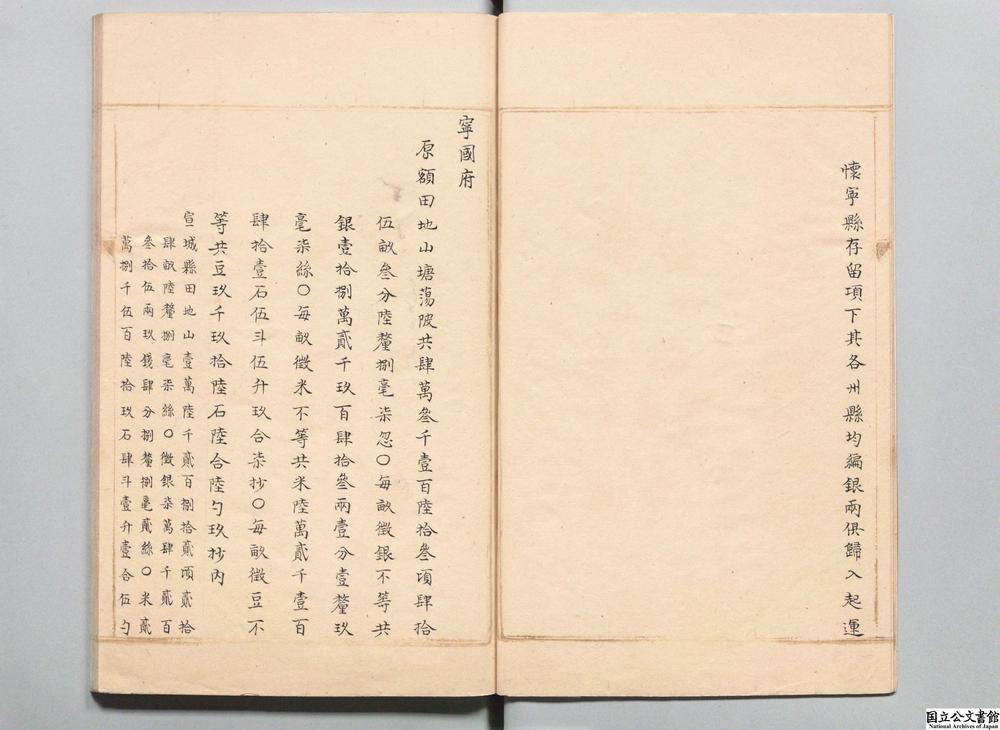 懷寧縣存留項下其各州縣均編銀兩俱歸入起運
寧國府
原額田地山塘蕩陂共肆萬叁千壹百陸拾叁頃肆拾
伍畝叁分陸釐捌毫柒忽〇每畝徵銀不等共
銀壹拾捌萬貳千玖百肆拾叁兩壹分壹釐玖
毫柒絲〇每畝徵米不等共米陸萬貳千壹百
肆拾壹石伍斗伍升玖合柒抄〇每畝徵豆不
等共豆玖千玖拾陸石陸合陸勺玖抄內
宣城縣田地山壹萬陸千貳百捌拾貳頃貳拾
肆畝陸釐捌毫柒絲〇徵銀柒萬肆千貳百
叁拾伍兩玖錢肆分捌釐捌毫貳絲〇米貳
萬捌千伍百陸拾玖石肆斗壹升壹合伍勺
国立公文書館
National Archives of Japan